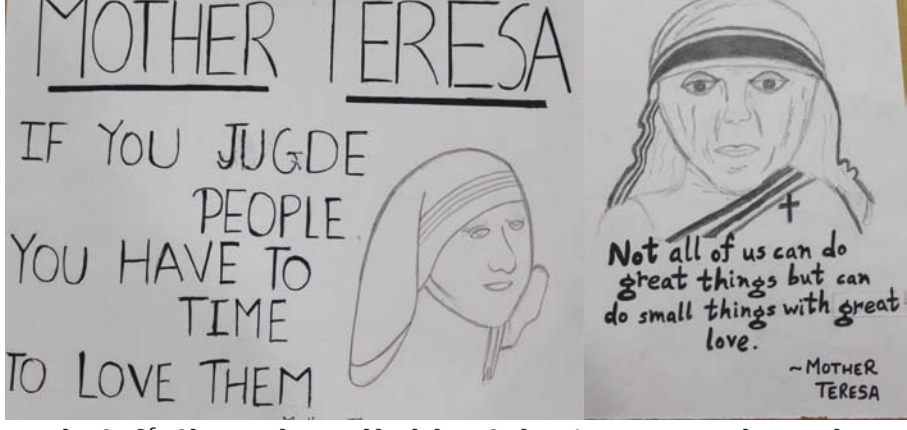 MOTHER TERESA
IF YOU JUGDE
PEOPLE
YOU HAVE TO
TIME
TO LOVE THEM
Not all of us can do
great things but can
do small things with great
love.
~MOTHER
TERESA